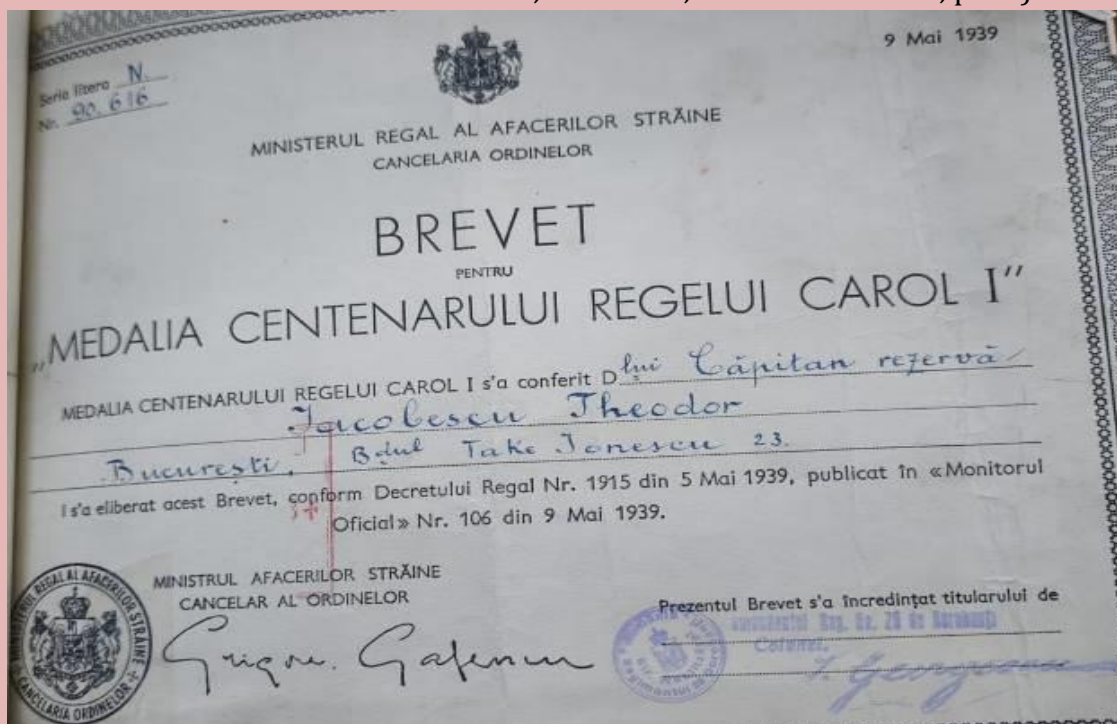 Serie litera N.
Nr. 90.616
9 Mai 1939
MINISTERUL REGAL AL AFACERILOR STRĂINE
CANCELARIA ORDINELOR
BREVET
PENTRU
„MEDALIA CENTENARULUI REGELUI CAROL I”
MEDALIA CENTENARULUI REGELUI CAROL I s'a conferit Dlui Căpitan rezervă
Jacobescu Theodor
București, Bdul Take Jonescu 23.
I s'a eliberat acest Brevet, conform Decretului Regal Nr. 1915 din 5 Mai 1939, publicat în «Monitorul
Oficial» Nr. 106 din 9 Mai 1939.
MINISTRUL AFACERILOR STRĂINE
CANCELAR AL ORDINELOR
Grigore Gafencu
MINISTERUL REGAL AL AFACERILOR STRĂINE
CANCELARIA ORDINELOR
Prezentul Brevet s'a încredințat titularului de
Reg. de
Colonel,